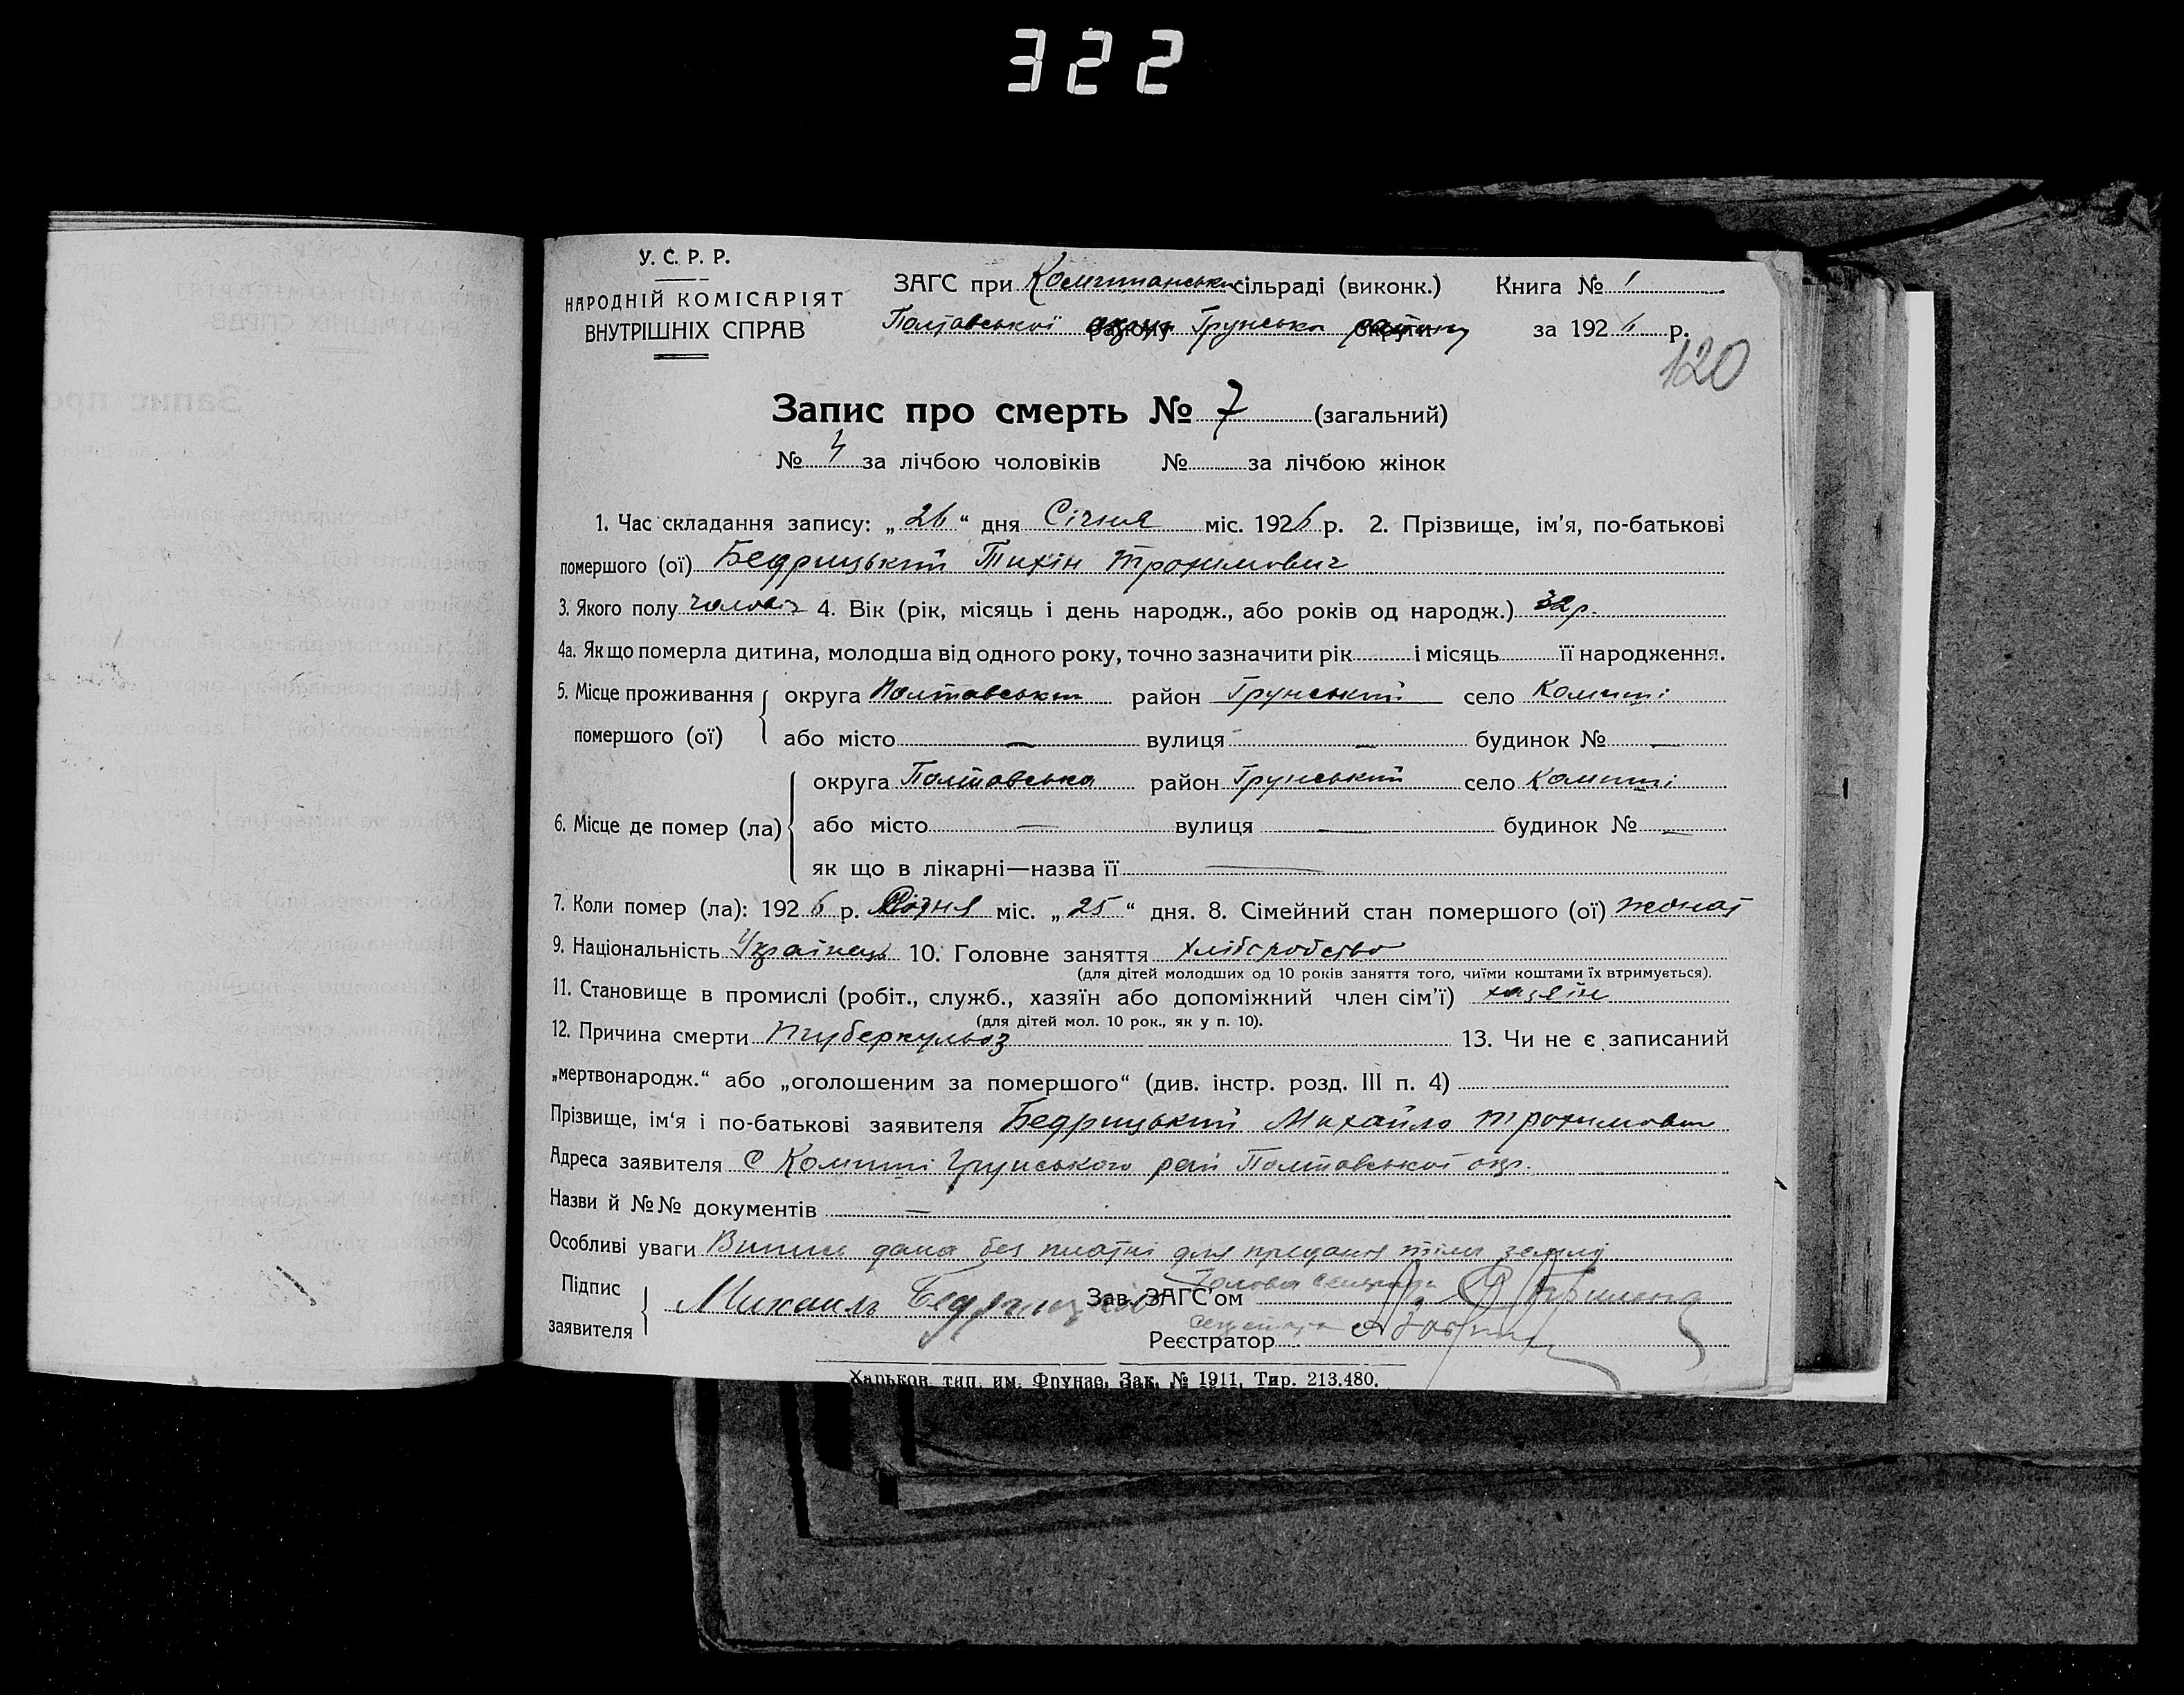 322
У. С. Р. Р.
НАРОДНІЙ КОМІСАРІЯТ
ВНУТРІШНІХ СПРАВ
ЗАГС при Комишанськ. сільраді (виконк.) Книга № 1
Полтавської округи Грунська району за 1926 р.
120
Запис про смерть № 7 (загальний)
№ 4 за лічбою чоловіків № за лічбою жінок
1. Час складання запису: „26“ дня Січня міс. 1926 р. 2. Прізвище, ім'я, по-батькові
помершого (ої) Бедрицький Тихін Трохимович
3. Якого полу чоловіч 4. Вік (рік, місяць і день народж., або років од народж.) 32 р.
4а. Якщо померла дитина, молодша від одного року, точно зазначити рік і місяць її народження.
5. Місце проживання округа Полтавський район Грунський село Комиші
помершого (ої) або місто — вулиця — будинок № —
округа Полтавська район Грунський село Комиші
6. Місце де помер (ла) або місто — вулиця — будинок № —
як що в лікарні—назва її —
7. Коли помер (ла): 1926 р. Січня міс. „25“ дня. 8. Сімейний стан помершого (ої) жонат
9. Національність Українець 10. Головне заняття хліборобство
(для дітей молодших од 10 років заняття того, чиїми коштами їх втримується).
11. Становище в промислі (робіт., служб., хазяїн або допоміжний член сім'ї) хазяїн
(для дітей мол. 10 рок., як у п. 10).
12. Причина смерти туберкульоз 13. Чи не є записаний
„мертвонародж.“ або „оголошеним за помершого“ (див. інстр. розд. III п. 4)
Прізвище, ім'я і по-батькові заявителя Бедрицький Михайло Трохимович
Адреса заявителя С Комиші Грунського рай Полтавської окр.
Назви й №№ документів —
Особливі уваги Випис дана без платні для придання тіла землі
Підпис
заявителя
Михаилъ Бедрицкій
Зав. ЗАГС'ом Голова сільради
Реєстратор Секретарь
Харьков, тип. им. Фрунзе, Зак. № 1911, Тир. 213.480.